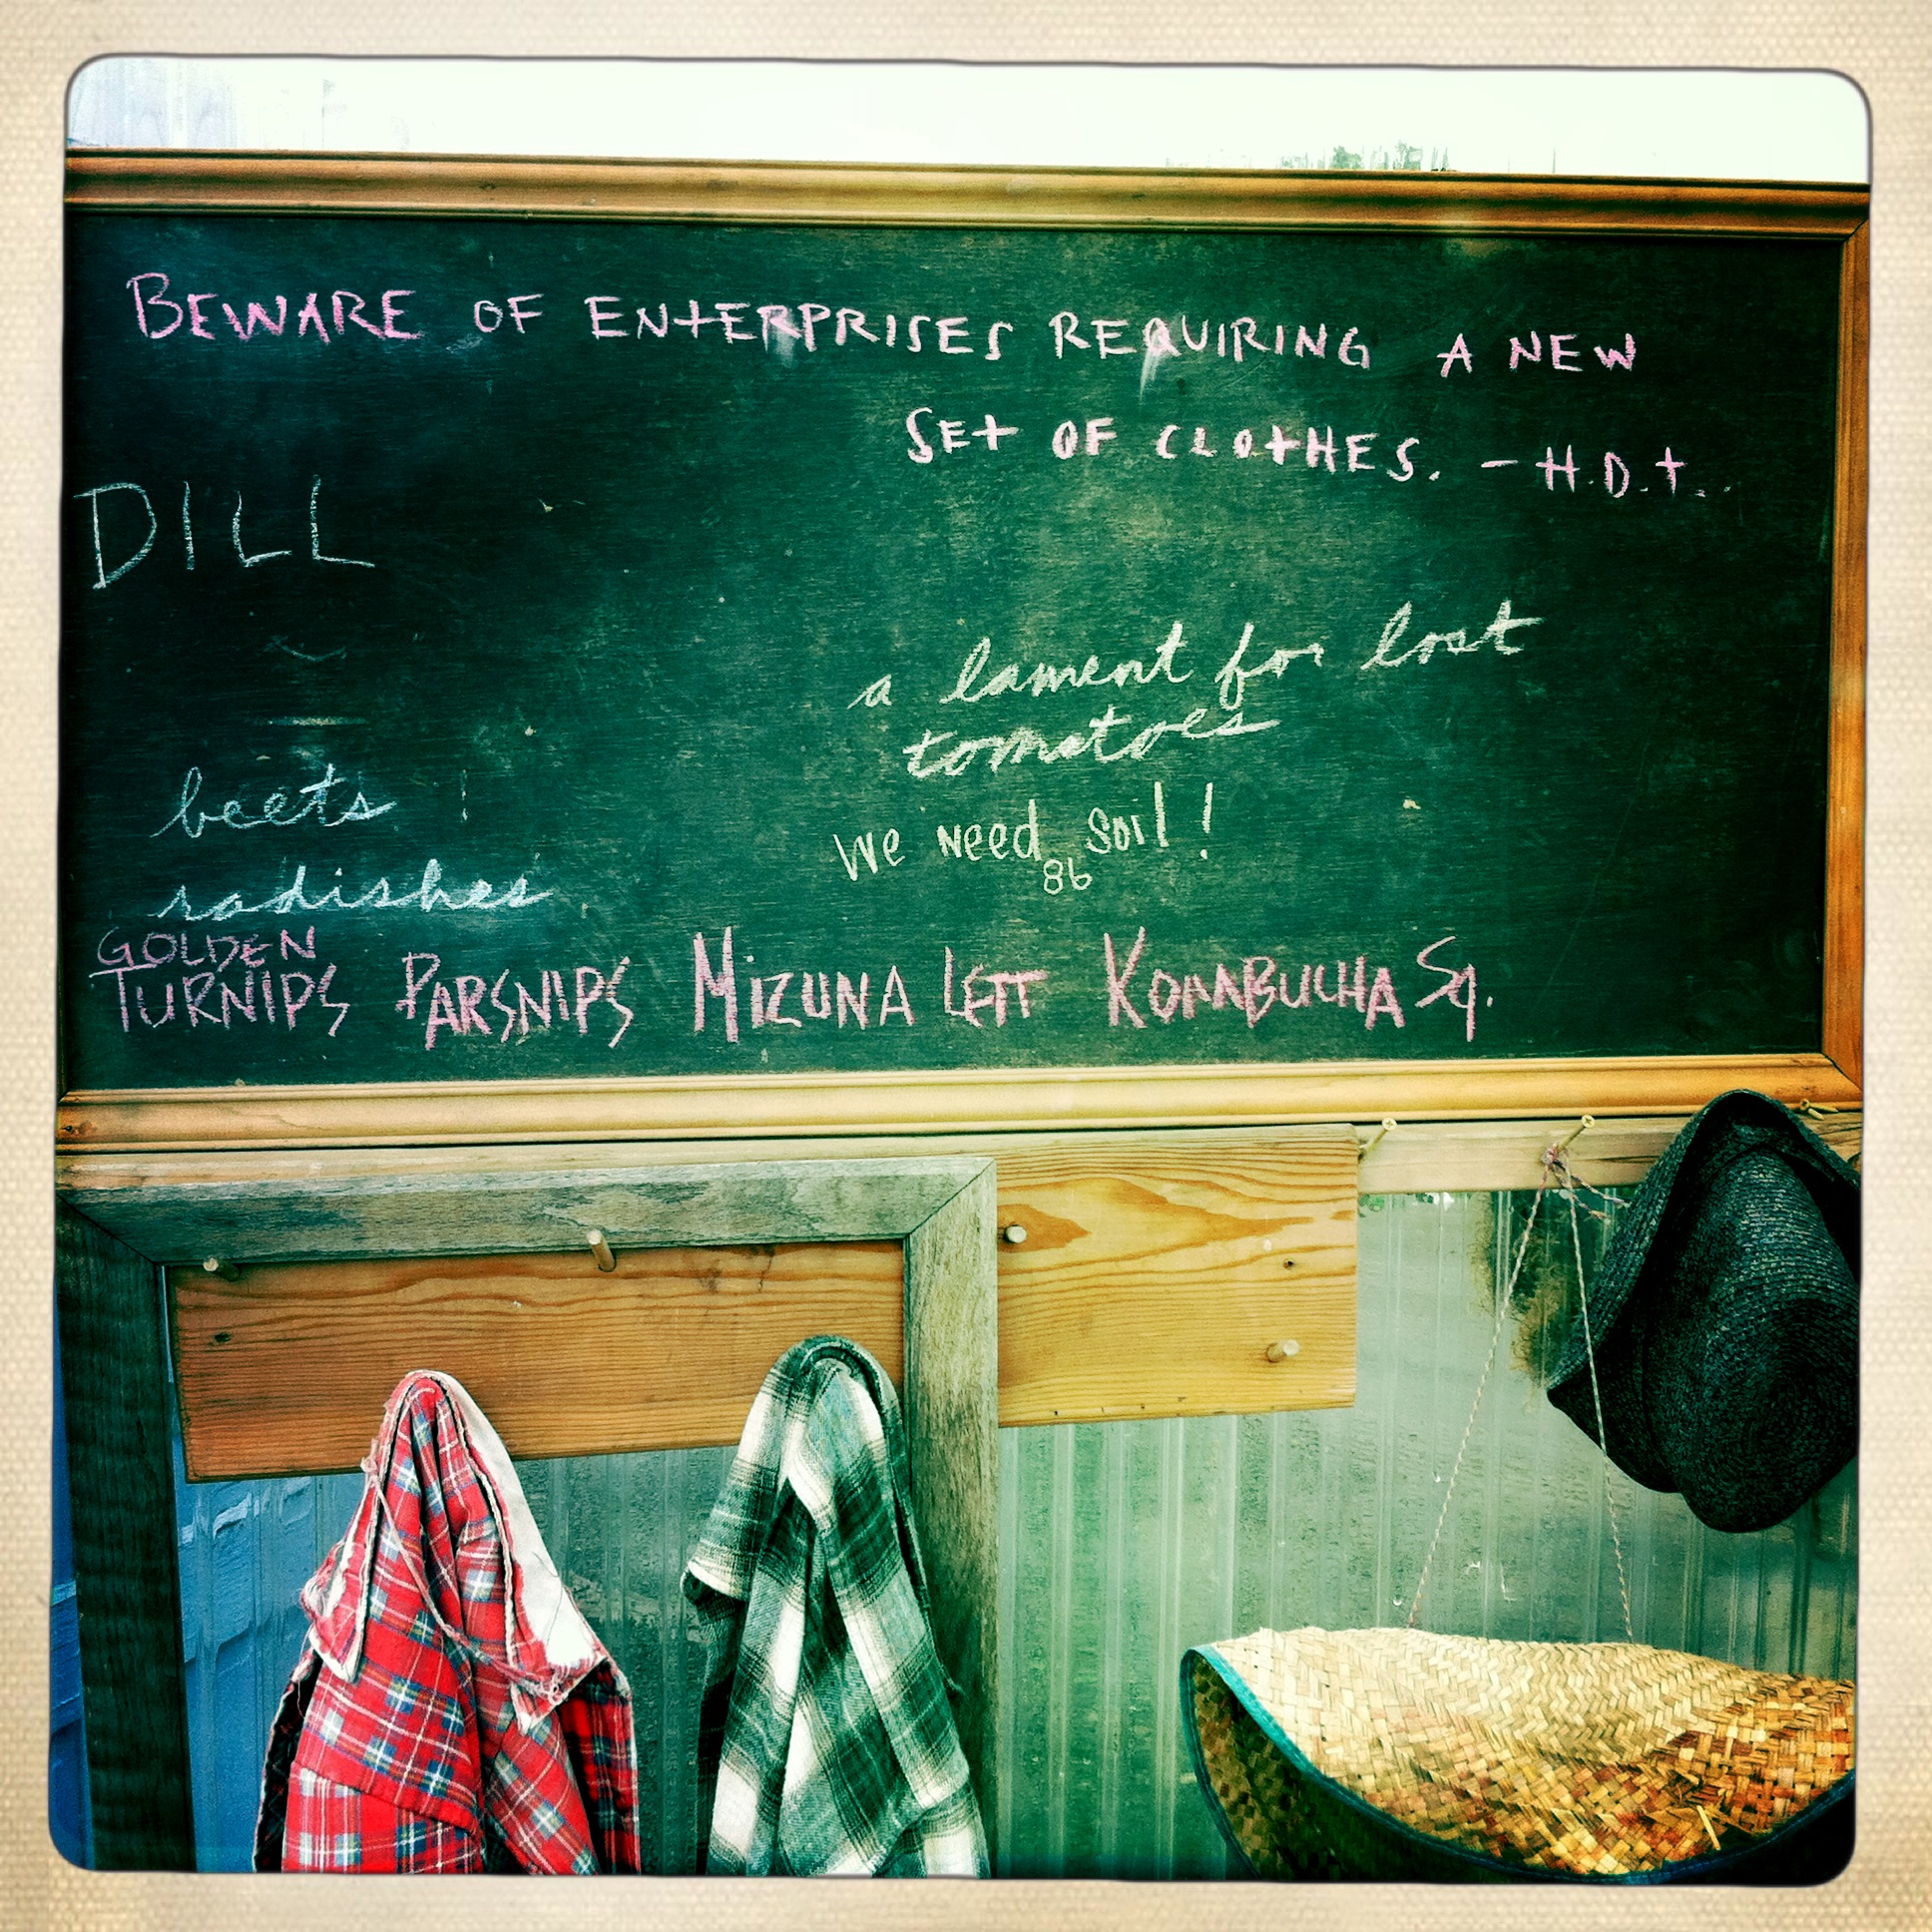 BEWARE OF ENTERPRISES REQUIRING A NEW
SET OF CLOTHES. - H.D.T.
DILL
a lament for lost
tomatoes
beets
We Need Soil!
86
radishes
GOLDEN
TURNIPS PARSNIPS MIZUNA LETT KOMBUCHA SQ.